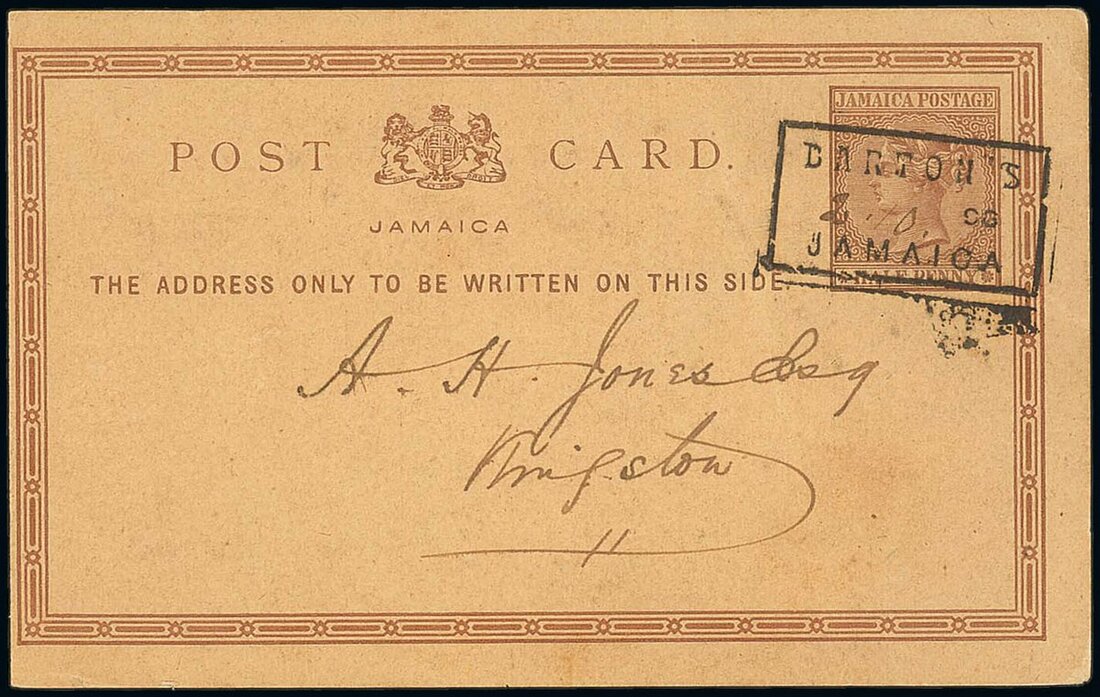 JAMAICA POSTAGE
POST CARD.
BARTON'S
JAMAICA
JAMAICA
HALF PENNY
THE ADDRESS ONLY TO BE WRITTEN ON THIS SIDE.
A. H. Jones Esq
Kingston